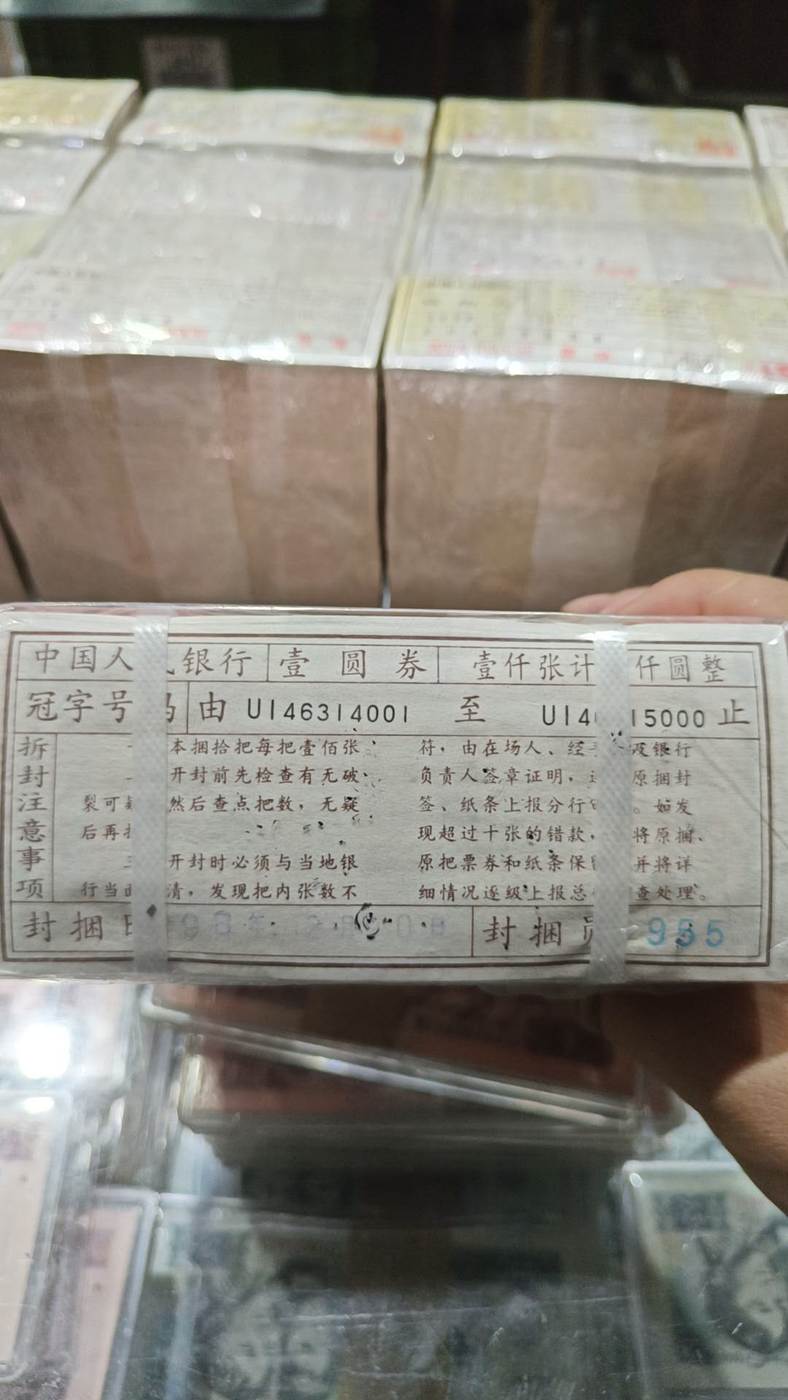 中国人 银行 壹圆券 壹仟张计 仟圆整
冠字号 由 UI46314001 至 UI4 15000 止
拆封注意事项
本捆拾把每把壹佰张
开封前先检查有无破
裂可 然后查点把数，无疑
后再
开封时必须与当地银
行当 清，发现把内张数不
符，由在场人、经 及银行
负责人签章证明， 原捆封
签、纸条上报分行 。如发
现超过十张的错款， 将原捆、
原把票券和纸条保 并将详
细情况逐级上报总 查处理。
封捆 封捆 955